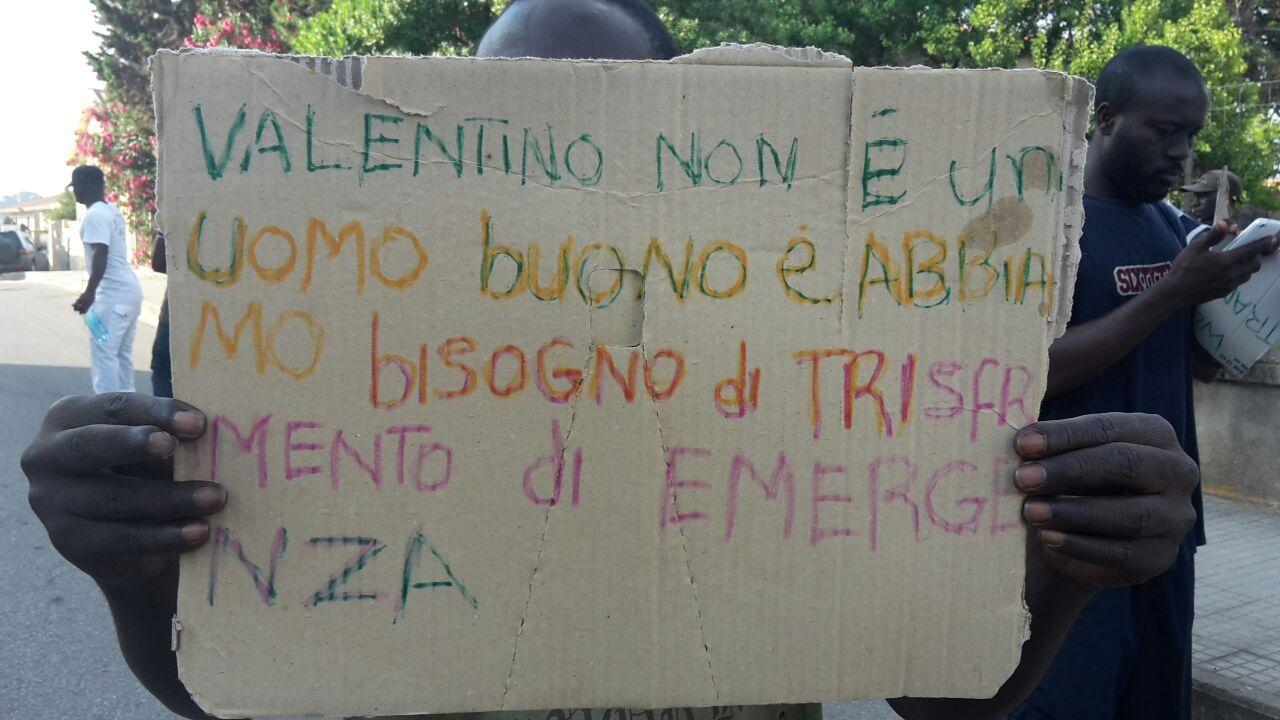 VALENTINO NON É un
UOMO buONO è ABBIA
MO bISOGNO di TRISFR
IMENTO di EMERGE
NZA